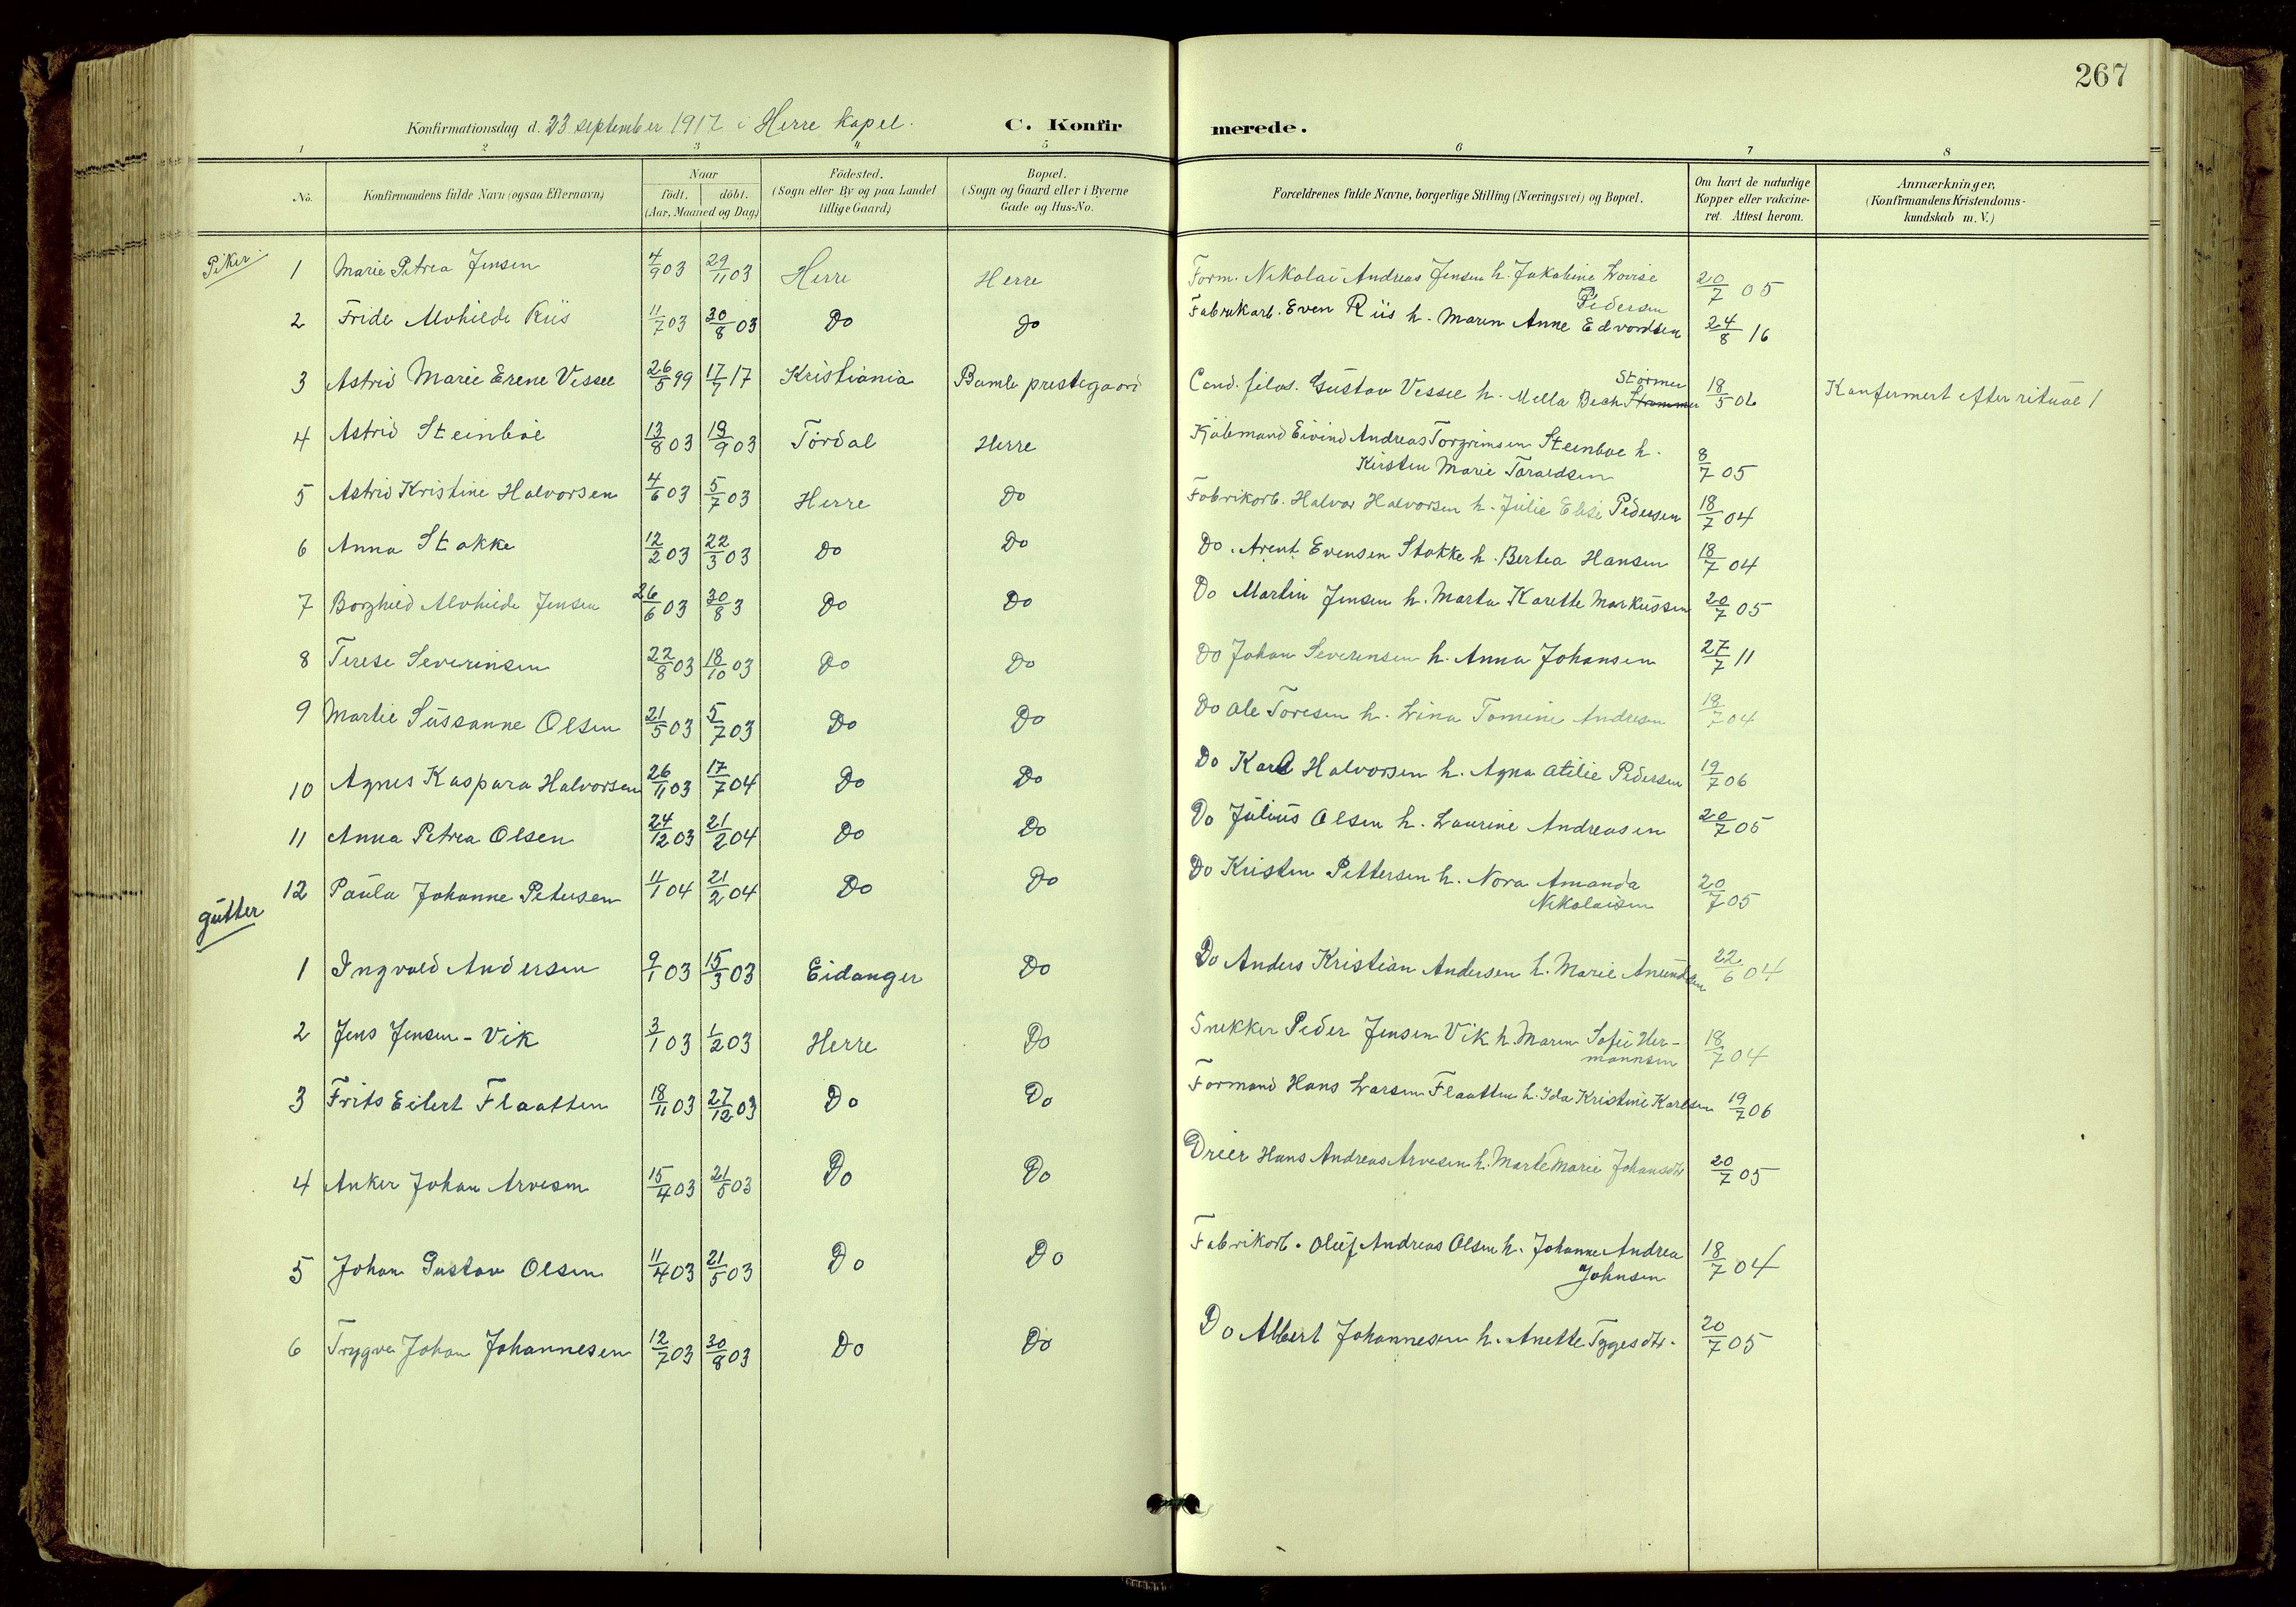 267
Konfirmationsdag d. 23 september 1917 i Herre kapel. C. Konfirmerede.
1 2 3 4 5 6 7 8
No. Konfirmandens fulde Navn (ogsaa Efternavn) Naar födt. döbt. (Aar, Maaned og Dag.) Födested. (Sogn eller By og paa Landet tillige Gaard.) Bopæl. (Sogn og Gaard eller i Byerne Gade og Hus-No. Forældrenes fulde Navne, borgerlige Stilling (Næringsvei) og Bopæl. Om havt de naturlige Kopper eller vakcineret. Attest herom. Anmærkninger, (Konfirmandens Kristendomskundskab m. V.)
Piker
1 Marie Petrea Jensen 4/9 03 29/11 03 Herre Herre Form. Nikolai Andreas Jensen h. Jakobine Lovise Pedersen 20/7 05
2 Fride Alvhilde Riis 11/7 03 30/8 03 Do Do Fabrikarb. Even Riis h. Maren Anne Edvardsen 24/8 16
3 Astrid Marie Erene Vessel 26/5 99 17/7 17 Kristiania Bamle prestegaard Cand. filos. Gustav Vessel h. Mella Bech Strømmer Størmer 18/5 06 Konfermert efter ritual 1
4 Astrid Steinboe 13/8 03 19/9 03 Tørdal Herre Kjøbmand Eivind Andreas Torgrimsen Steinboe h. Kirsten Marie Taraldsen 8/7 05
5 Astrid Kristine Halvorsen 4/6 03 5/7 03 Herre Do Fabrikarb. Halvor Halvorsen h. Julie Elise Pedersen 18/7 04
6 Anna Stokke 12/2 03 22/3 03 Do Do Do. Arent Evensen Stokke h. Bertea Hansen 18/7 04
7 Borghild Alvhilde Jensen 26/6 03 30/8 3 Do Do Do Martin Jensen h. Marta Karette Markussen 20/7 05
8 Terese Severinsen 22/8 03 18/10 03 Do Do Do Johan Severensen h. Anna Johansen 27/7 11
9 Martie Sussanne Olsen 21/5 03 5/7 03 Do Do Do Ole Toresen h. Lina Tomine Andresen 18/7 04
10 Agnes Kaspara Halvorsen 26/11 03 17/7 04 Do Do Do Karl Halvorsen h. Agna Otilie Pedersen 19/7 06
11 Anna Petrea Olsen 24/12 03 21/2 04 Do Do Do Julius Olsen h. Laurine Andreasen 20/7 05
12 Paula Johanne Petersen 11/1 04 21/2 04 Do Do Do Kristen Pettersen h. Nora Amanda Nikolaisen 20/7 05
gutter
1 Ingvald Andersen 9/1 03 15/3 03 Eidanger Do Do Anders Kristian Andersen h. Marie Amundsen 22/6 04
2 Jens Jensen - Vik 3/1 03 1/2 03 Herre Do Snekker Peder Jensen Vik h. Maren Sofie Hermannsen 18/7 04
3 Frits Eilert Flaatten 18/11 03 27/12 03 Do Do Formand Hans Larsen Flaatten h. Ida Kristine Karlsen 19/7 06
4 Anker Johan Arvesen 15/4 03 21/5 03 Do Do Dreier Hans Andreas Arvesen h. Marte Marie Johansdtr 20/7 05
5 Johan Gustav Olsen 11/4 03 21/5 03 Do Do Fabrikarb. Oluf Andreas Olsen h. Johanne Andrea Johnsen 18/7 04
6 Trygve Johan Johannesen 12/7 03 30/8 03 Do Do Do Albert Johannesen h. Anette Tygesdtr. 20/7 05